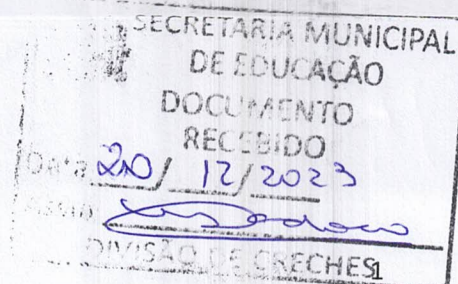 SECRETARIA MUNICIPAL
DE EDUCAÇÃO
DOCUMENTO
RECEBIDO
DATA 20/ 12/2023
DIVISÃO DE CRECHES
1